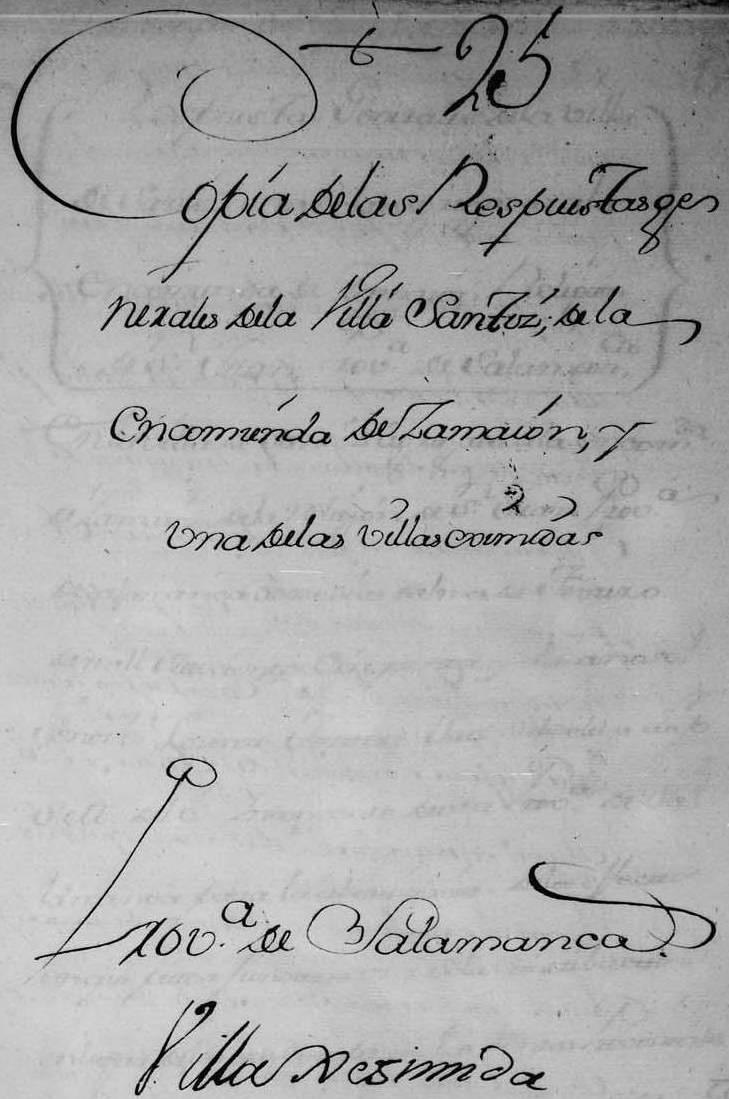 t 25
Copia de las Respuestas ge
nerales de la Villa Santiz, de la
Encomienda de Zamaion, y
una de las Villas eximidas
Prov.ª de Salamanca.
Villa Redimida